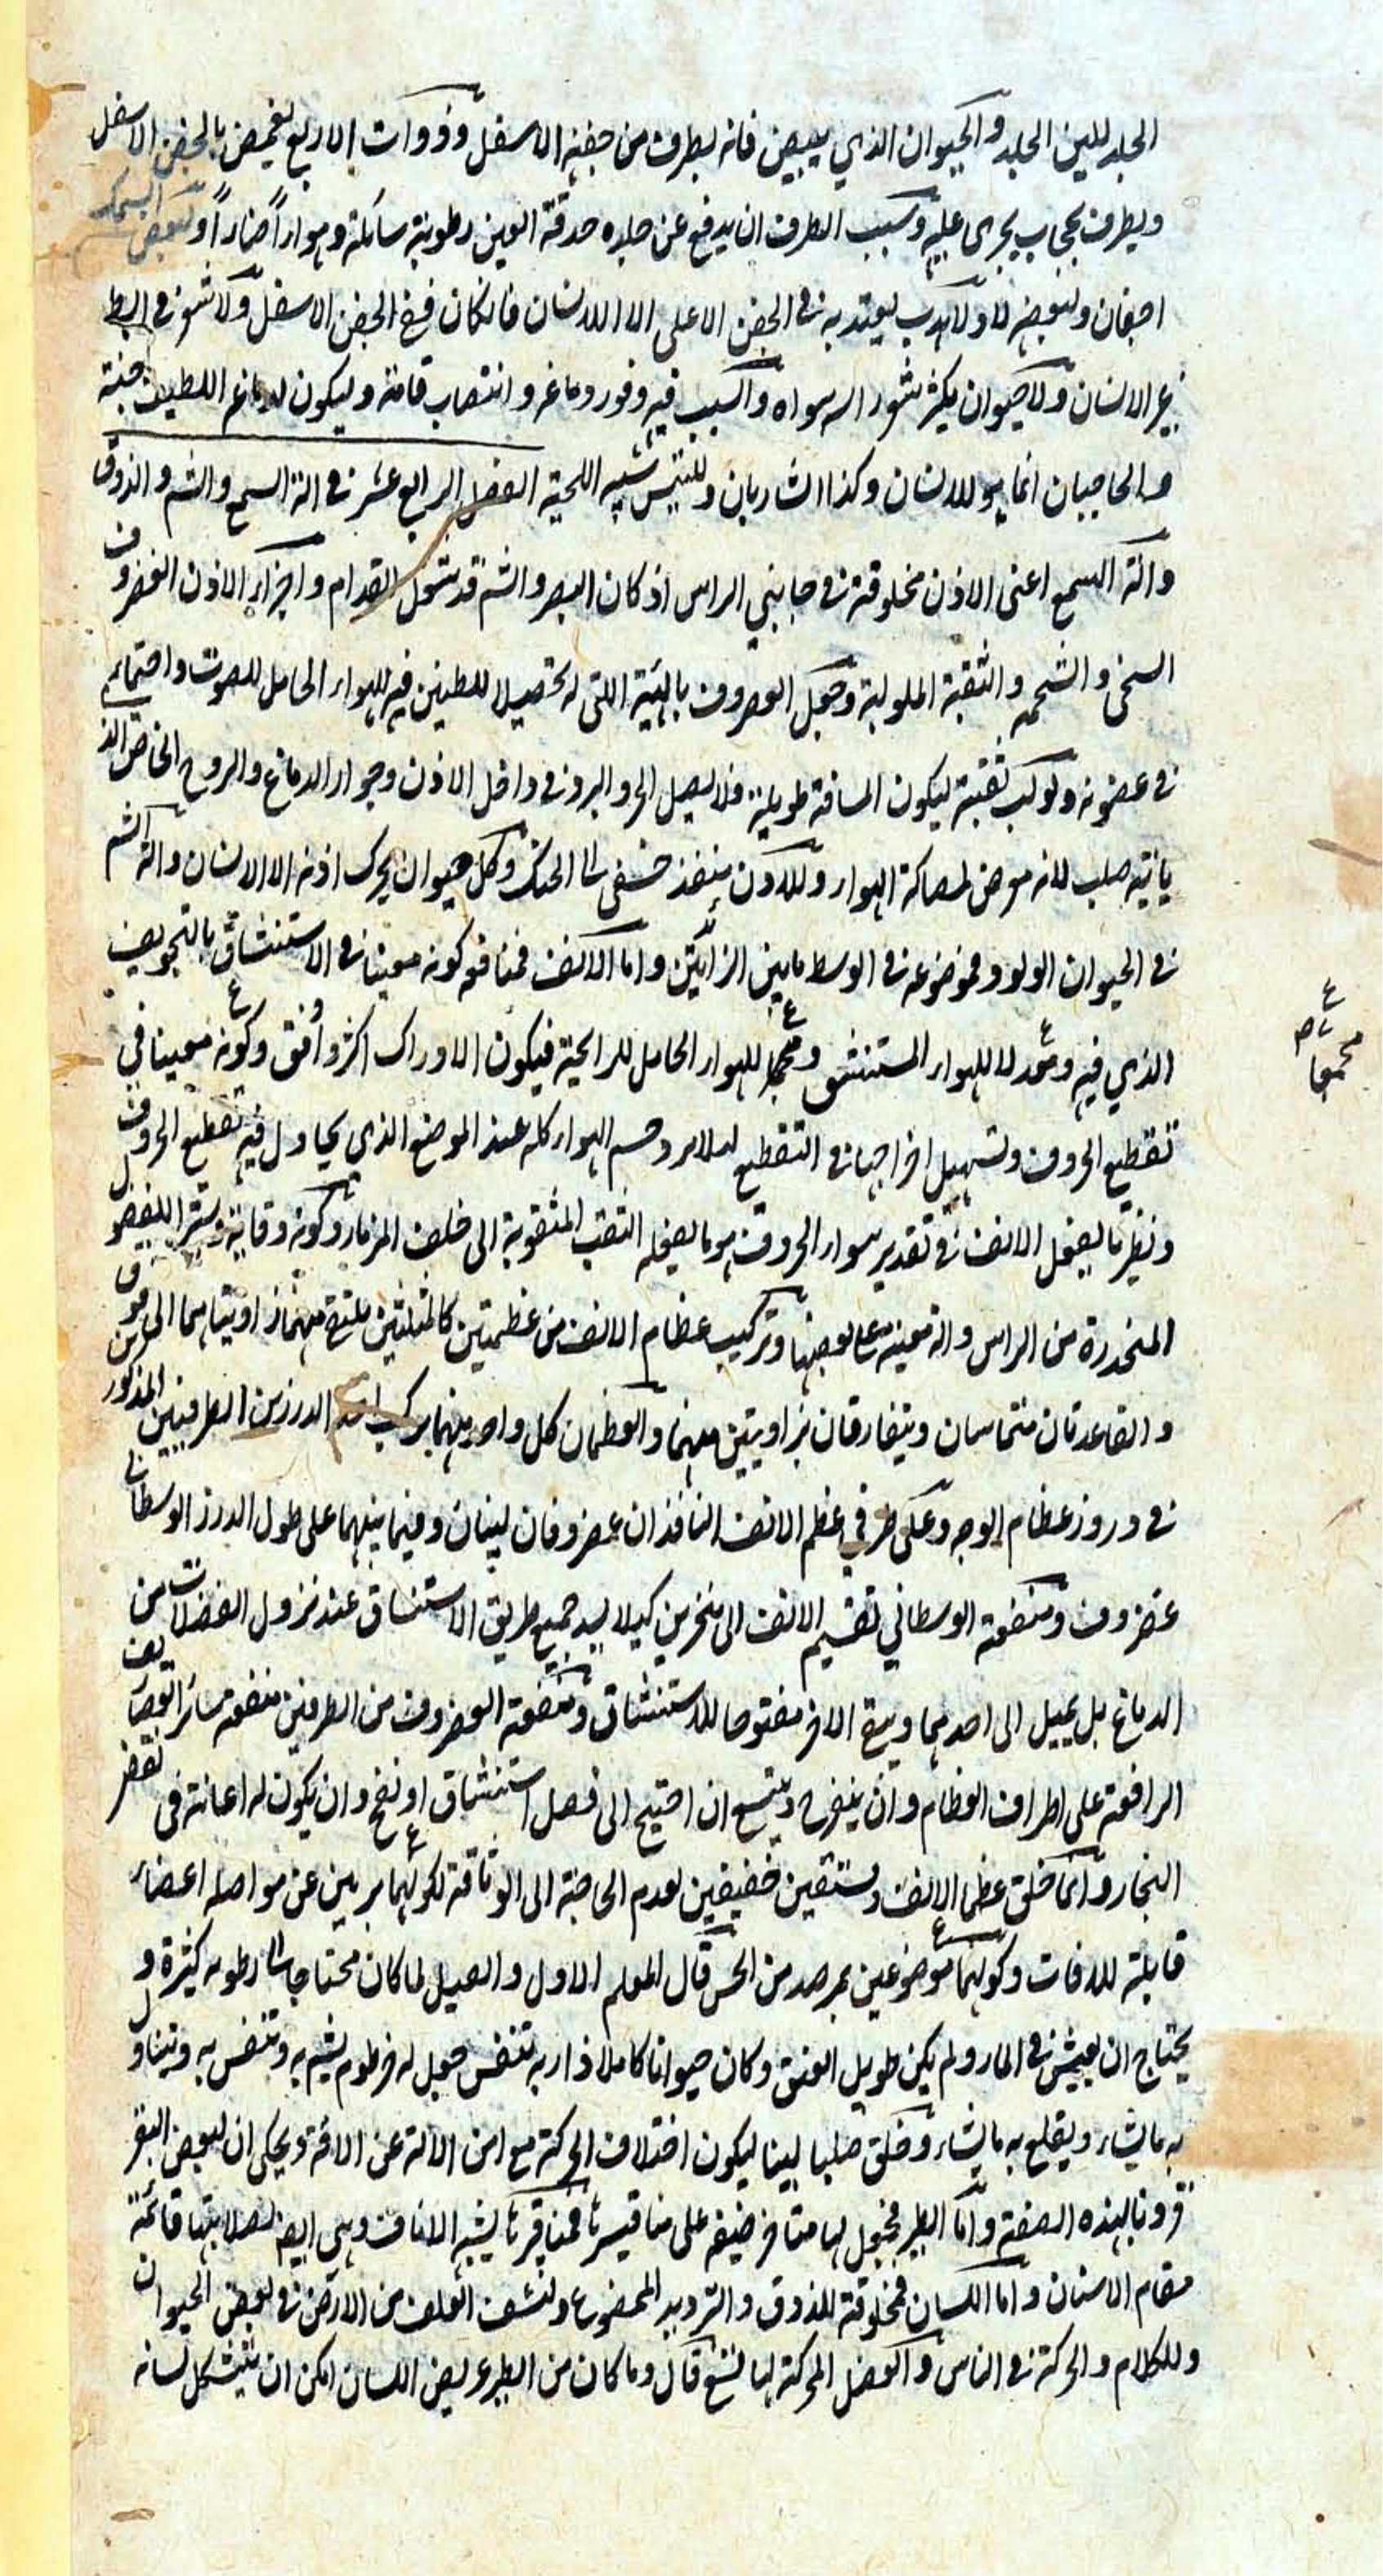 الجلد للين الجلد والحيوان الذي يبيض فانه يطرف من جفنه الاسفل وذوات الاربع تغميض بالجفن الاسفل
ويطرف بحجاب يجرى عليه وسبب الطرف ان يدفع عن جلده حدقة العين رطوبة سائلة وهواراً ضاراً ولبعض السمك
اجفان ولبعضه لا ولا هدب يعتد به في الجفن الاعلى الا للانسان فانكان ففي الجفن الاسفل ولا شعر في ابط
غير الانسان ولا حيوان يكثر شعور اسه سواه والسبب فيه وفور دماغه وانتصاب قامته وليكون لدماغه اللطيف جنة
والحاجبان انما هو للانسان وكذا الشاربان وللتيس شبيه اللحية الفصل الرابع عشر في الة السمع والشم والذوق
والة السمع اعنى الاذن مخلوقة في جانبي الراس اذ كان البصر والشم قد شغل القدام واجزاء الاذن الغضروف
السخى والشحمه والثقبة الملولبة وجعل الغضروف بالهيئة اللتى له تحصيلا للطنين فيه للهواء الحامل للصوت واجتماعه
في غضونه ولولب ثقبته ليكون المسافة طويلة فلا يصل الحر والبرد في داخل الاذن وجوار الدماغ والروح الخاص الذ
ياتيه صلب لانه معرض لمصاكة الهواء وللاذن منفذ خفى الى الحنك وكل حيوان يحرك اذنه الا الانسان والة الشم
في الحيوان الولود فموضوعه في الوسط مابين الزائدتين واما الانف فمنافعه كونه معينا في الاستنشاق بالتجويف
الذي فيه ومعدلا للهواء المستنشق ومجمعا للهواء الحامل للرايحة فيكون الادراك اكثر واوفق وكونه معينا في
تقطيع الحروف وتسهيل اخراجها في التقطيع لئلا يزدحم الهواء كله عند الموضع الذي يحاول فيه تقطيع الحروف
ونظير ما يفعل الانف في تقدير هواء الحروف هو ما يفعله الثقب المثقوبة الى خلف المزمار وكونه وقاية وستر اللفضول
المنحدرة من الراس والة معينة على نفضها وتركيب عظام الانف من عظمتين كالمثلثين يلتقي منهما زاويتاهما الى فوق
والقاعدتان متماسان ويتفارقان بزاويتين منهما والعظمان كل واحد منهما يركب احد الدرزين الطرفيين المذكورين
في دروز عظام الوجه وعلى طرفي عظم الانف النافذان غضروفان لينان وفيما بينهما على طول الدرز الوسطانى
غضروف ومنفعة الوسطاني تقسيم الانف الى منخرين كيلا يسد جميع طريق الاستنشاق عند نزول الفضلات من
الدماغ بل يميل الى احدهما ويبقى الاخر مفتوحا للاستنشاق ومنفعة الغضروف من الطرفين منفعة سائر الغضاريف
الواقعة على اطراف العظام وان ينفرج ويتسع ان احتيج الى فضل استنشاق او نفخ وان يكون له اعانة في نفض
البخار وانما خلق عظما الانف دقيقين خفيفين لعدم الحاجة الى الوثاقة لكونهما بريين عن مواصلة اعضاء
قابلة للافات وكونهما موضوعين بمرصد من الحس قال المعلم الاول والفيل لما كان محتاجا الى رطوبه كثيرة و
يحتاج ان يعيش في الماء ولم يكن طويل العنق وكان حيوانا كاملا ذا ربة تتنفس جعل له خرطوم يشم به ويتنفس به ويتناول
به مايشاء ويقلع به مايشاء وخلق صلبا لينا ليكون اختلاف الحركة مع امن الالة عن الافة ويحكى ان لبعض البقر
قرونا بهذه الصفة واما الطير فمجعول لها مناخر ضيقه على مناقيرها فمناقيرها يشبه الاناف وهي ايضا لصلابتها قائمة
مقام الاسنان واما اللسان فمخلوقة للذوق والترديد الممضوغ ولنشف العلف من الارض في بعض الحيوان
وللكلام والحركة في الناس والعضل المحركة لها تسع قال وما كان من الطير عريض اللسان امكن ان يتشكل لسانه
مجمعا صح